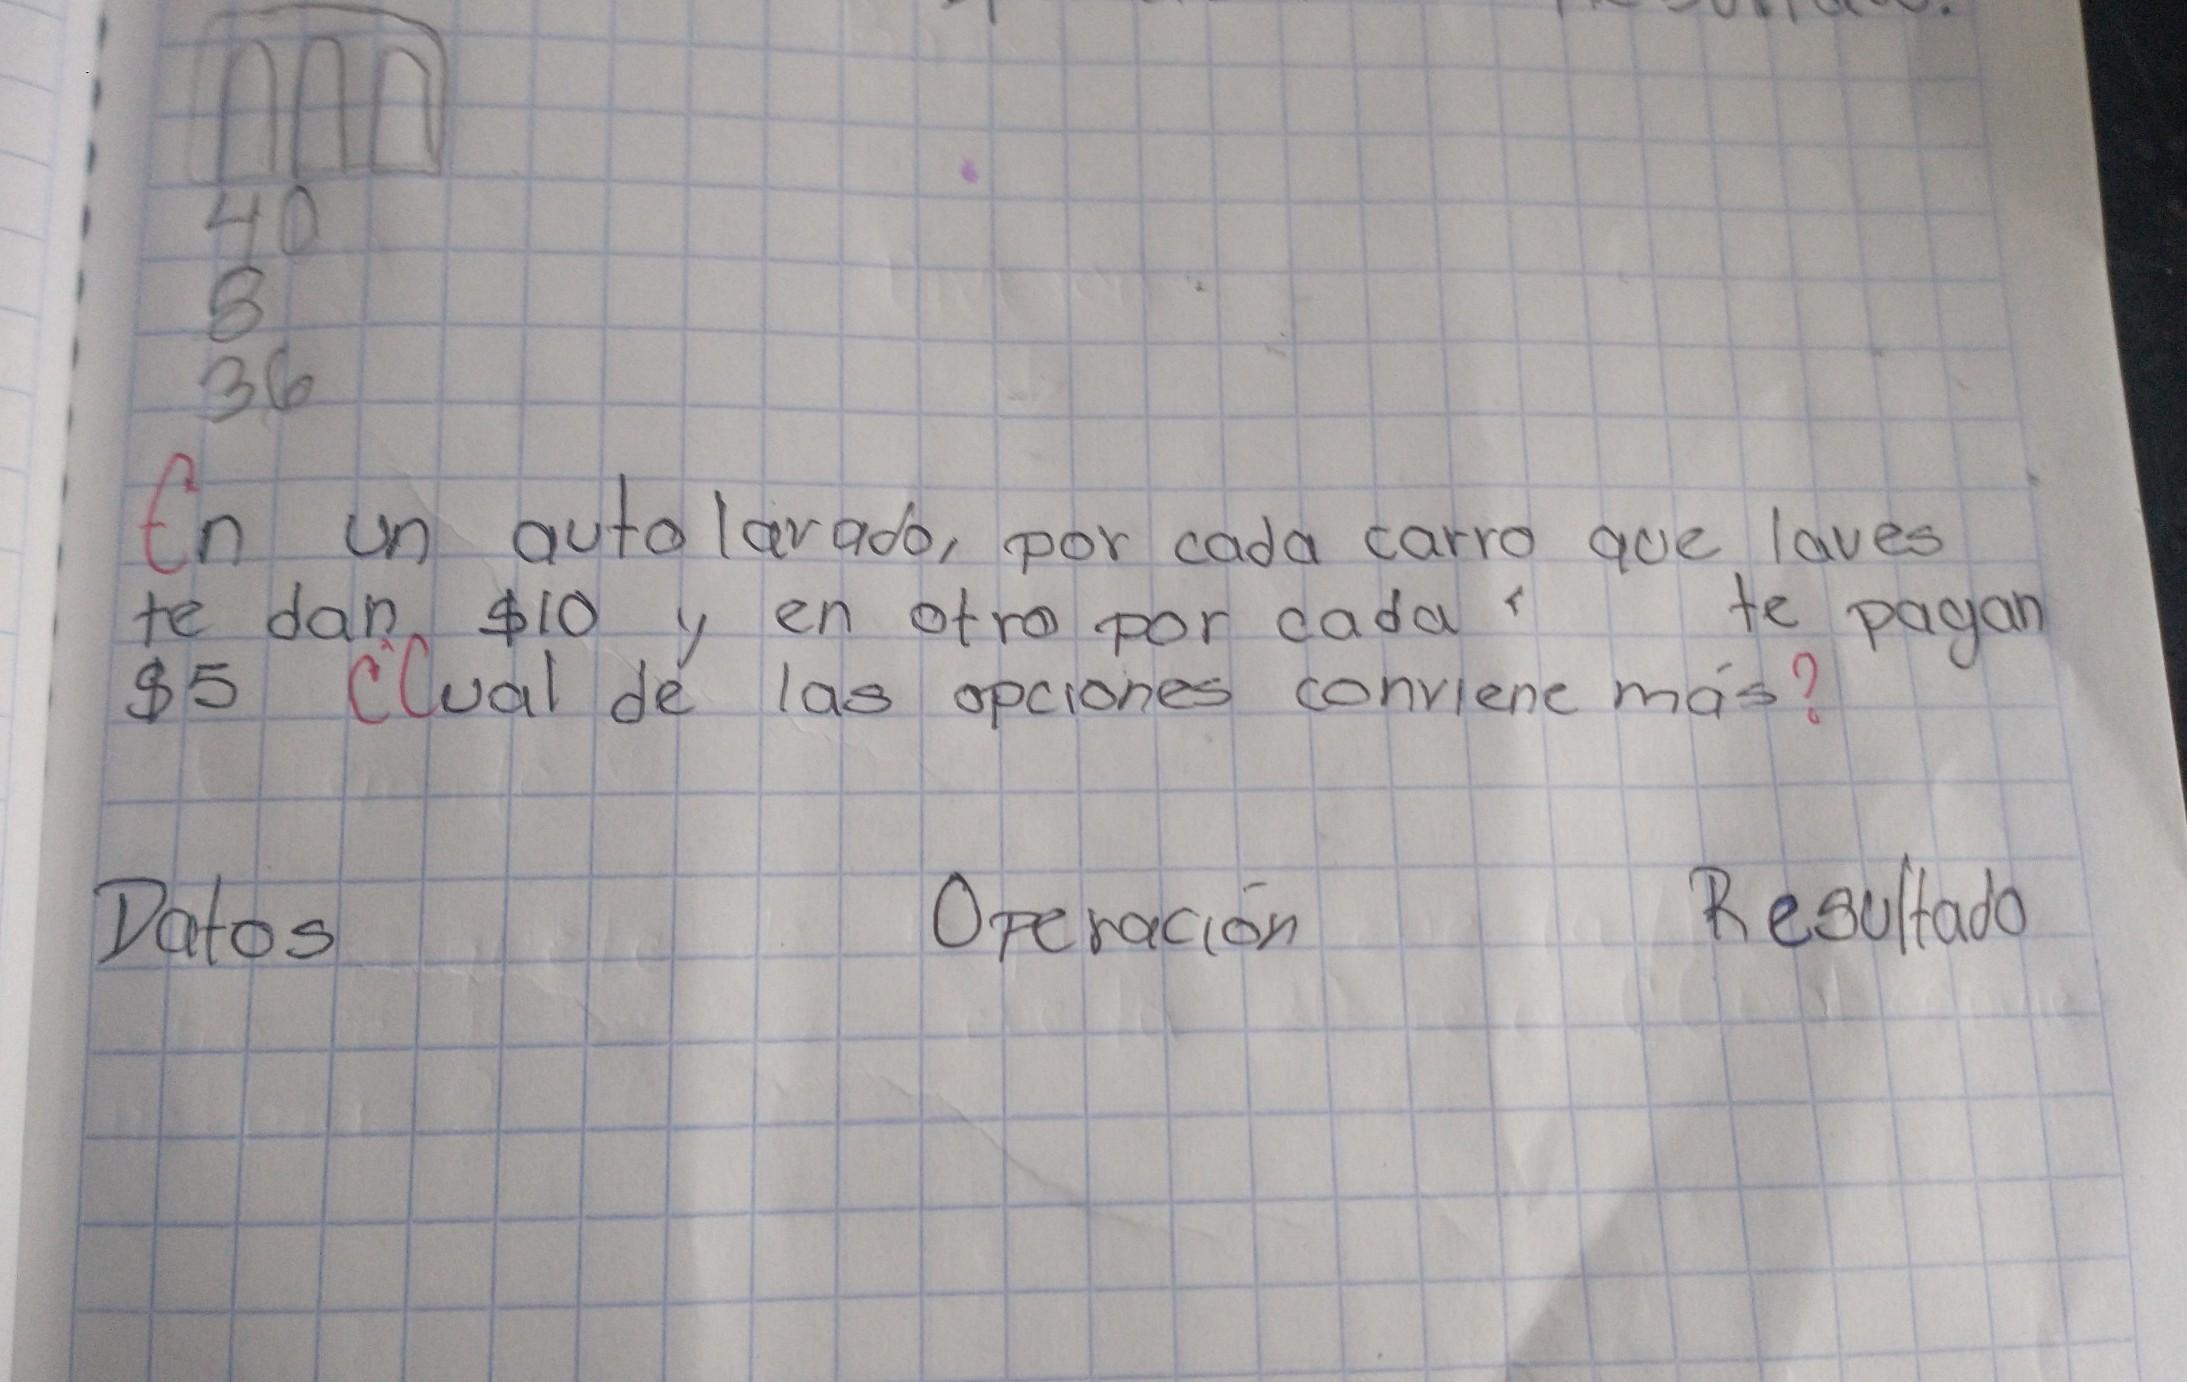 40
8
36
En un autolavado, por cada carro que laves
te dan $10 y en otro por cada te pagan
$5 ¿Cual de las opciones conviene más?
Datos Operación Resultado